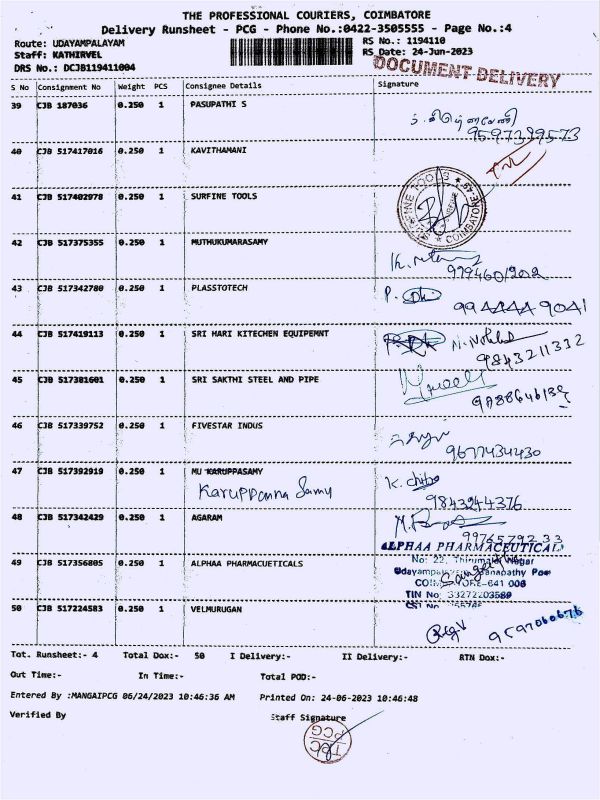 THE PROFESSIONAL COURIERS, COIMBATORE
Delivery Runsheet - PCG - Phone No.:0422-3505555 - Page No.:4
Route: UDAYAMPALAYAM RS No.: 1194110
Staff: KATHIRVEL RS Date: 24-Jun-2023
DRS No.: DCJB119411004
DOCUMENT DELIVERY
S No Consignment No Weight PCS Consignee Details Signature
39 CJB 187036 0.250 1 PASUPATHI S
9597399573
40 CJB 517417016 0.250 1 KAVITHAMANI
41 CJB 517402978 0.250 1 SURFINE TOOLS
SURFINE TOOLS * COIMBATORE-49 *
42 CJB 517375355 0.250 1 MUTHUKUMARASAMY
43 CJB 517342780 0.250 1 PLASSTOTECH
P.
994444 9041
44 CJB 517419113 0.250 1 SRI HARI KITECHEN EQUIPEMNT
9843211332
45 CJB 517381601 0.250 1 SRI SAKTHI STEEL AND PIPE
46 CJB 517339752 0.250 1 FIVESTAR INDUS
9677434430
47 CJB 517392919 0.250 1 MU KARUPPASAMY
Karuppanna Samy
9843244376
48 CJB 517342429 0.250 1 AGARAM
9976579233
ALPHAA PHARMACEUTICAL
49 CJB 517356805 0.250 1 ALPHAA PHARMACUETICALS
No: 22, Thirumalai Nagar
Udayampalayam, Ganapathy Post
COIMBATORE-641 006
TIN No 33272203589
CST No
50 CJB 517224583 0.250 1 VELMURUGAN
9597060676
Tot. Runsheet:- 4 Total Dox:- 50 I Delivery:- II Delivery:- RTN Dox:-
Out Time:- In Time:- Total POD:-
Entered By :MANGAIPCG 06/24/2023 10:46:36 AM Printed On: 24-06-2023 10:46:48
Verified By Staff Signature
PCG